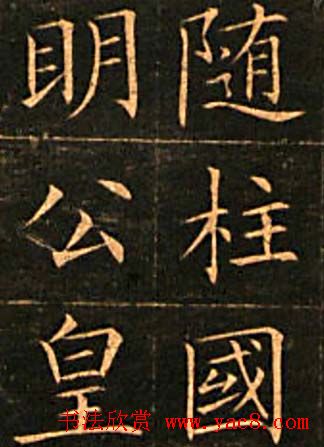 随柱國
明公皇
书法欣赏 www.yac8.com